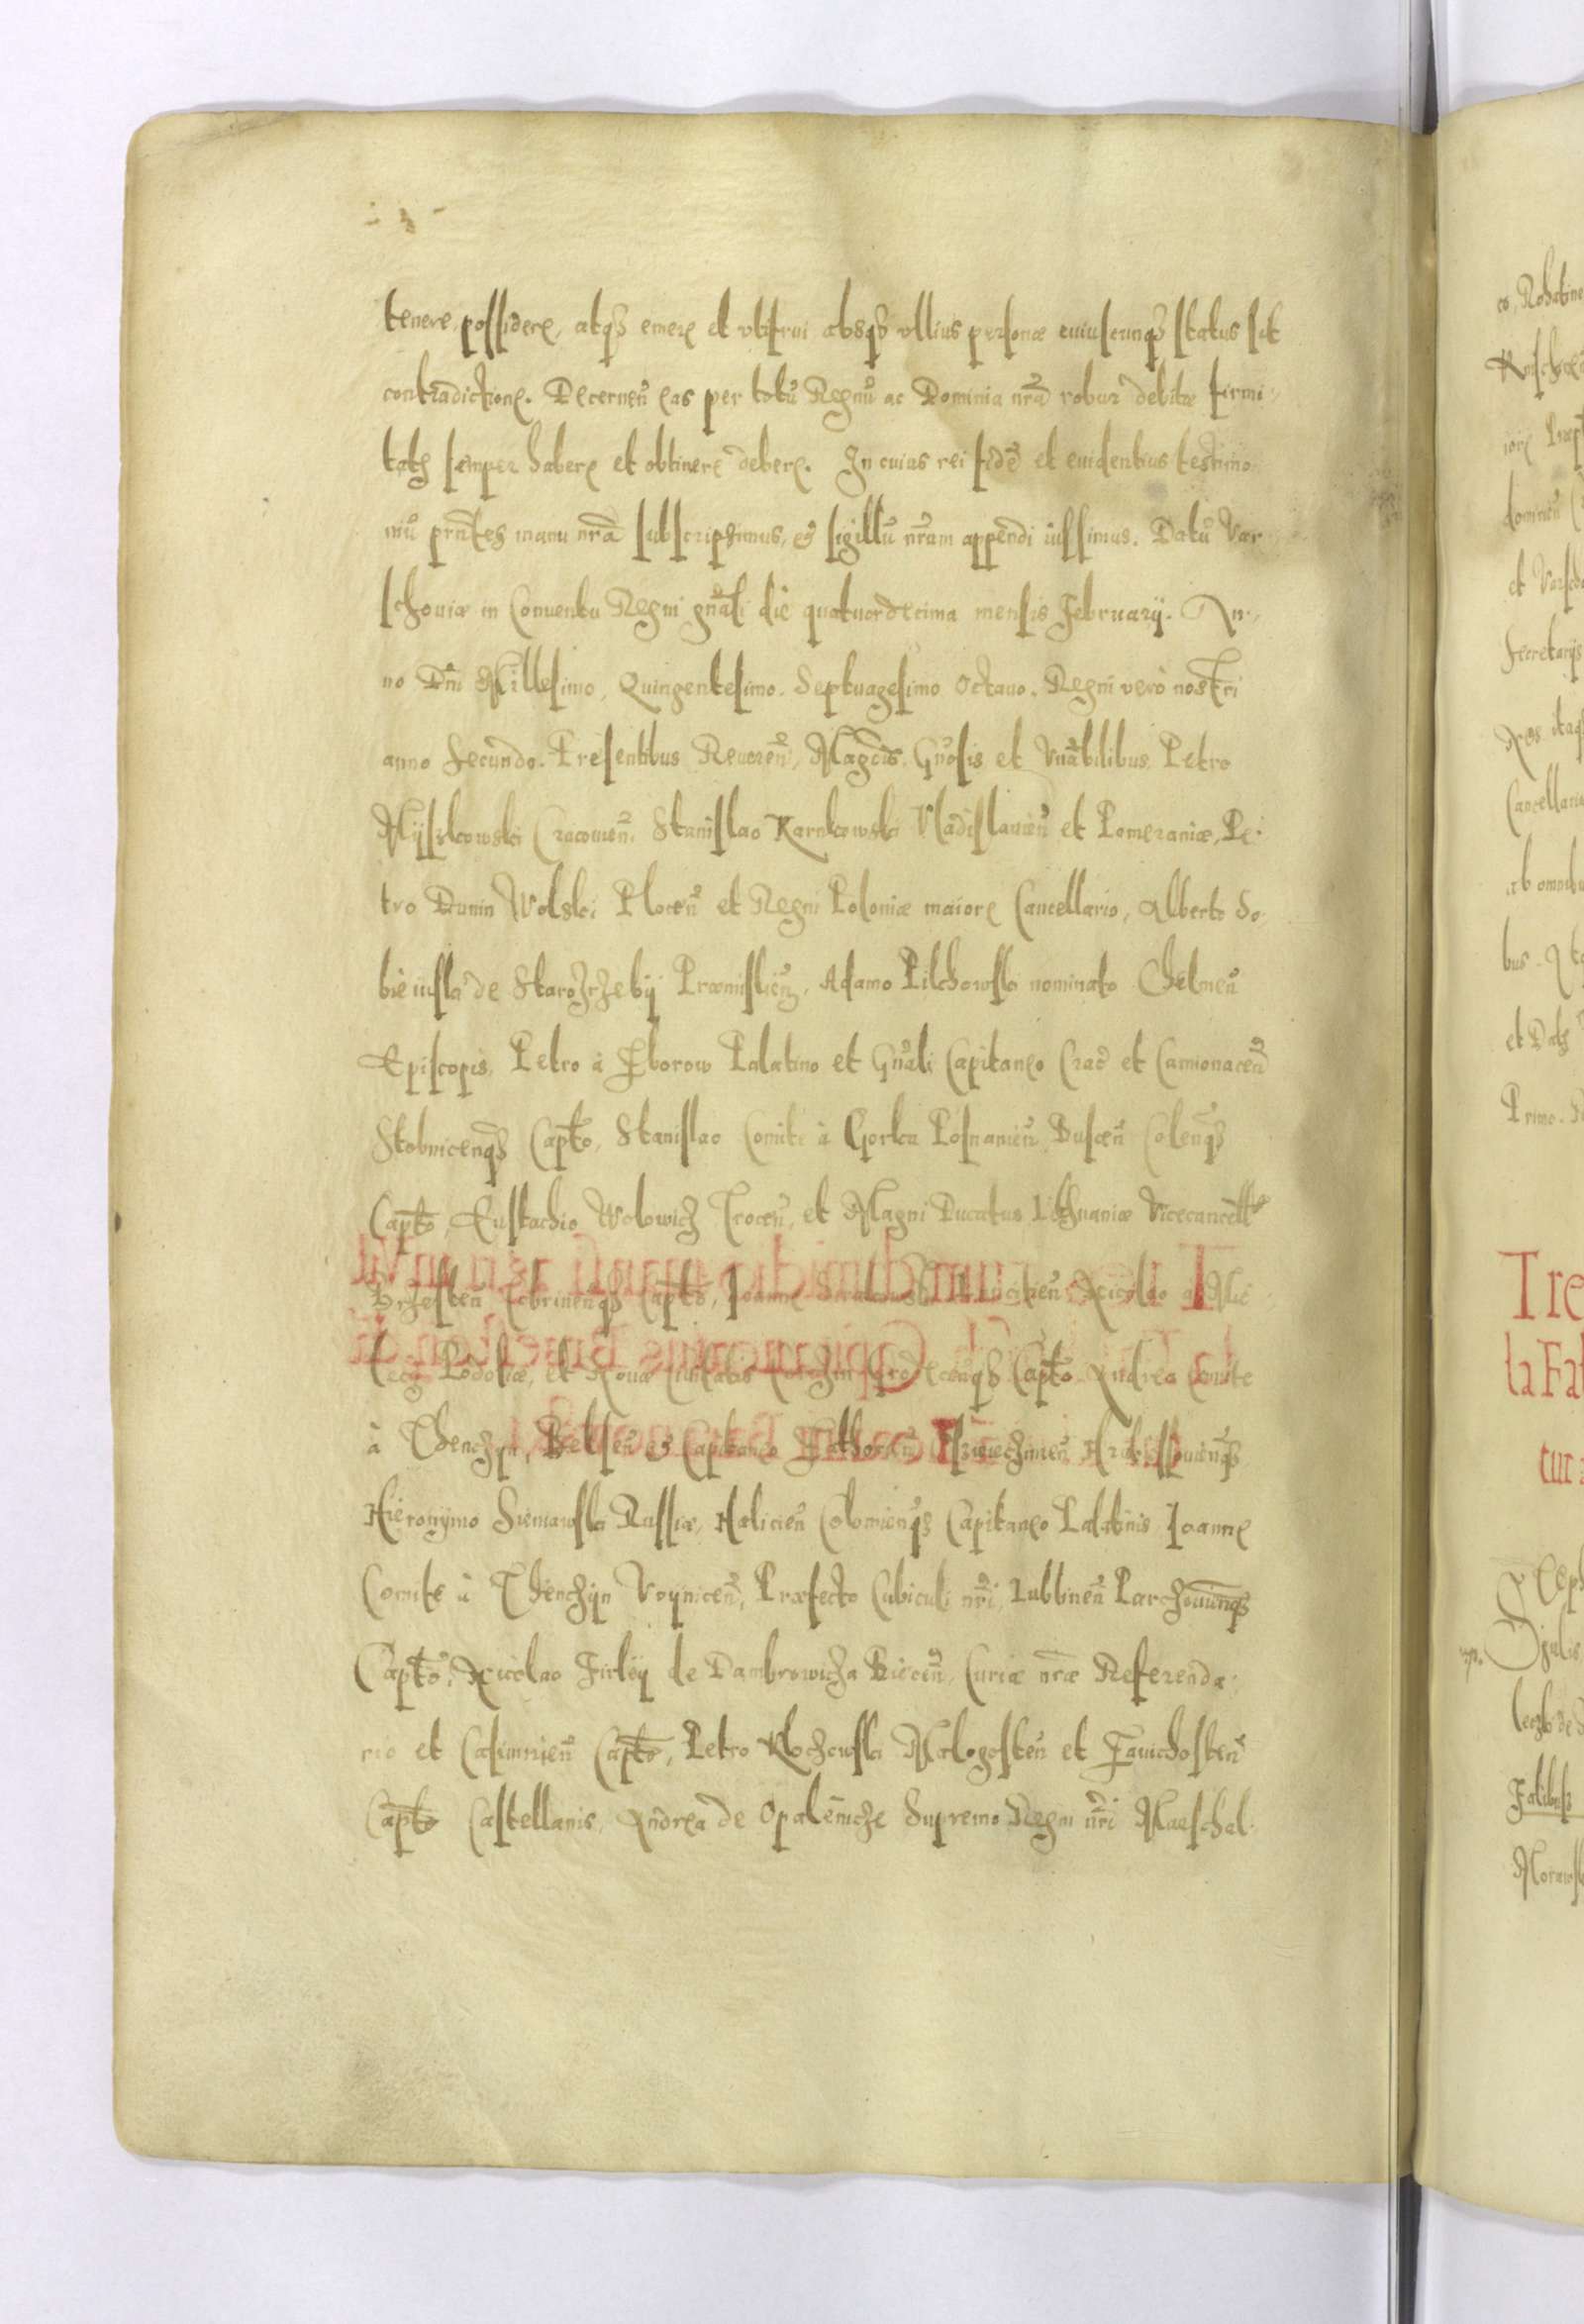 tenere, possidere, atqȝ emere et vtifrui absqȝ vllius personæ cuiuscunqȝ status sit
contradictione. Decernen̄ eas per totū Regnū ac Dominia nr̄a robur debitæ firmi-
tatis semper habere et obtinere debere. In cuius rei fidē et euidentius testimo-
niū pn̄tes manu nr̄a subscripsimus, et sigillū nr̄um appendi iussimus. Datū Var-
schouiæ in Conuentu Regni gn̄ali die quatuordecima mensis Februarij. An-
no Dn̄i Millesimo, Quingentesimo. Septuagesimo Octauo. Regni verò nostri
anno Secundo. Presentibus Reueren̄, Magcis, Gn̄osis et Vn̄abilibus Petro
Myszkowski Cracouien̄. Stanislao Karnkowski Vladislauien̄ et Pomeraniæ, Pe-
tro Dunin Wolski Plocen̄ et Regni Poloniæ maiore Cancellario, Alberto So-
bieiuski de Starozrzebij Præmislien̄, Adamo Pilchowski nominato Chelmen̄
Episcopis, Petro à Zborow Palatino et Gn̄ali Capitaneo Crac̄ et Camionacen̄
Stobnicenqȝ Capt̄o, Stanislao Comite à Gorka Posnanien̄ Buscen̄ Colenqȝ
Capt̄o, Eustachio Wolowicz Trocen̄, et Magni Ducatus Lithuaniæ Vicecancell̄o
Brzesten̄ Cobrinenqȝ Capt̄o, Ioanne Nicolao à Mie
lecz Podoliæ, et Nouæ Ciuitatis Grodecenqȝ Capt̄o Andrea Comite
à Thenczyn, Belsen̄ et Capitaneo
Hieronymo Sieniawski Russiæ, Halicien̄ Colomienqȝ Capitaneo Palatinis Ioanne
Comite à Thenczyn Voynicen̄, Præfecto Cubiculi nr̄i, Lublinen̄ Parczouien̄qȝ
Capt̄o, Nicolao Firley de Dambrowicza Biecen̄, Curiæ nr̄æ Referenda-
rio et Casimirien̄ Capt̄o, Petro Kloczowski Malogosten̄ et Zauichosten̄
Capt̄o Castellanis, Andrea de Opalenicze Supremo Regni nr̄i Marschal-